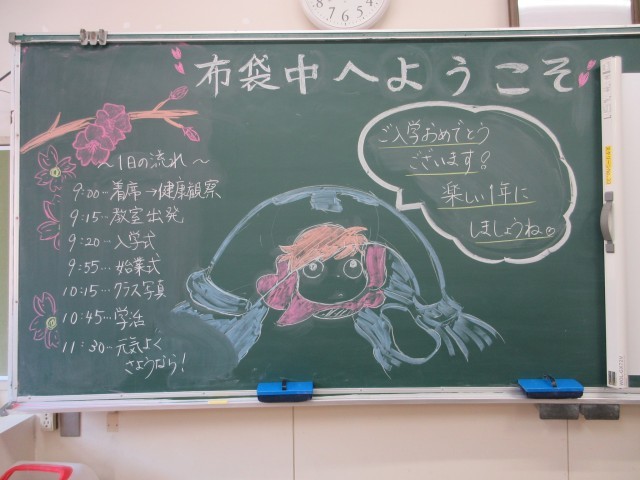 布袋中へようこそ
ご入学おめでとう
ございます!
楽しい1年に
しましょうね
〜1日の流れ〜
9:00…着席→健康観察
9:15…教室出発
9:20…入学式
9:55…始業式
10:15…クラス写真
10:45…学活
11:30…元気よく
さようなら!